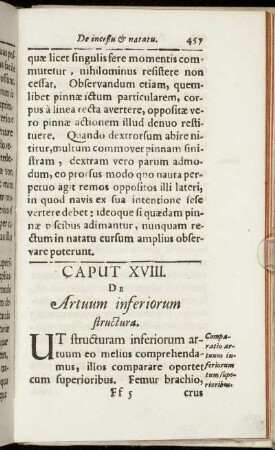 De incessu & natatu. 457
quæ licet singulis fere momentis com-
mutetur, nihilominus resistere non
cessat. Observandum etiam, quem-
libet pinnæ ictum particularem, cor-
pus à linea recta avertere, oppositæ ve-
ro pinnæ actionem illud denuo resti-
tuere. Quando dextrorsum abire ni-
titur, multum commovet pinnam sini-
stram, dextram vero parum admo-
dum, eo prorsus modo quo nauta per-
petuo agit remos oppositos illi lateri,
in quod navis ex sua intentione sese
vertere debet: ideoque si quædam pin-
næ piscibus adimantur, nunquam re-
ctum in natatu cursum amplius obser-
vare poterunt.
CAPUT XVIII.
DE
Artuum inferiorum
structura.
UT structuram inferiorum ar-
tuum eo melius comprehenda-
mus, illos comparare oportet
cum superioribus. Femur brachio,
Compa-
ratio ar-
tuum in-
feriorum
cum supe-
rioribus.
Ff 5 crus